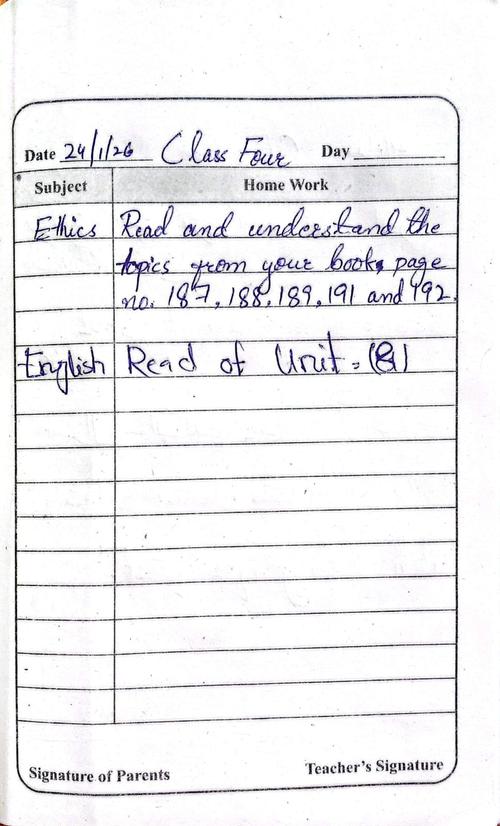 Date 24/1/26 Class Four Day
Subject Home Work
Ethics Read and understand the
topics from your book, page
no. 187, 188, 189, 191 and 192.
English Read of Unit - (8)
Signature of Parents Teacher's Signature